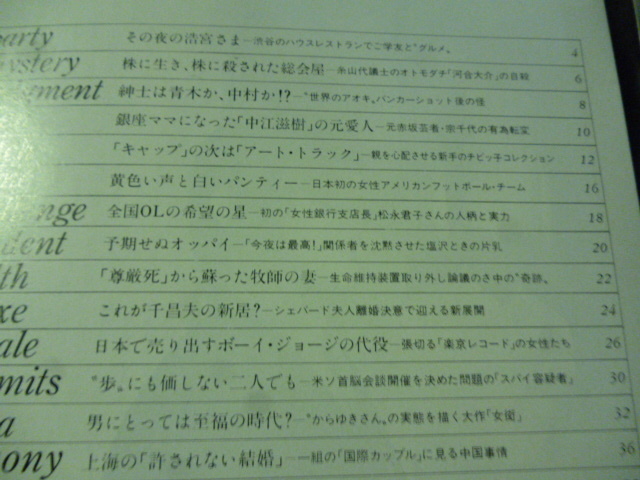 party その夜の浩宮さま—渋谷のハウスレストランでご学友と“グルメ〟 4
mystery 株に生き、株に殺された総会屋—糸山代議士のオトモダチ「河合大介」の自殺 6
ment 紳士は青木か、中村か!?—“世界のアオキ〟バンカーショット後の怪 8
銀座ママになった「中江滋樹」の元愛人—元赤坂芸者・宗千代の有為転変 10
「キャップ」の次は「アート・トラック」—親を心配させる新手のチビッ子コレクション 12
黄色い声と白いパンティー—日本初の女性アメリカンフットボール・チーム 16
nge 全国OLの希望の星—初の「女性銀行支店長」松永君子さんの人柄と実力 18
dent 予期せぬオッパイ—「今夜は最高!」関係者を沈黙させた塩沢ときの片乳 20
th 「尊厳死」から蘇った牧師の妻—生命維持装置取り外し論議のさ中の“奇跡〟 22
xe これが千昌夫の新居?—シェパード夫人離婚決意で迎える新展開 24
ale 日本で売り出すボーイ・ジョージの代役—張切る「楽京レコード」の女性たち 26
mits “歩〟にも価しない二人でも—米ソ首脳会談開催を決めた問題の「スパイ容疑者」 30
a 男にとっては至福の時代?—“からゆきさん〟の実態を描く大作「女衒」 32
ony 上海の「許されない結婚」—一組の「国際カップル」に見る中国事情 36